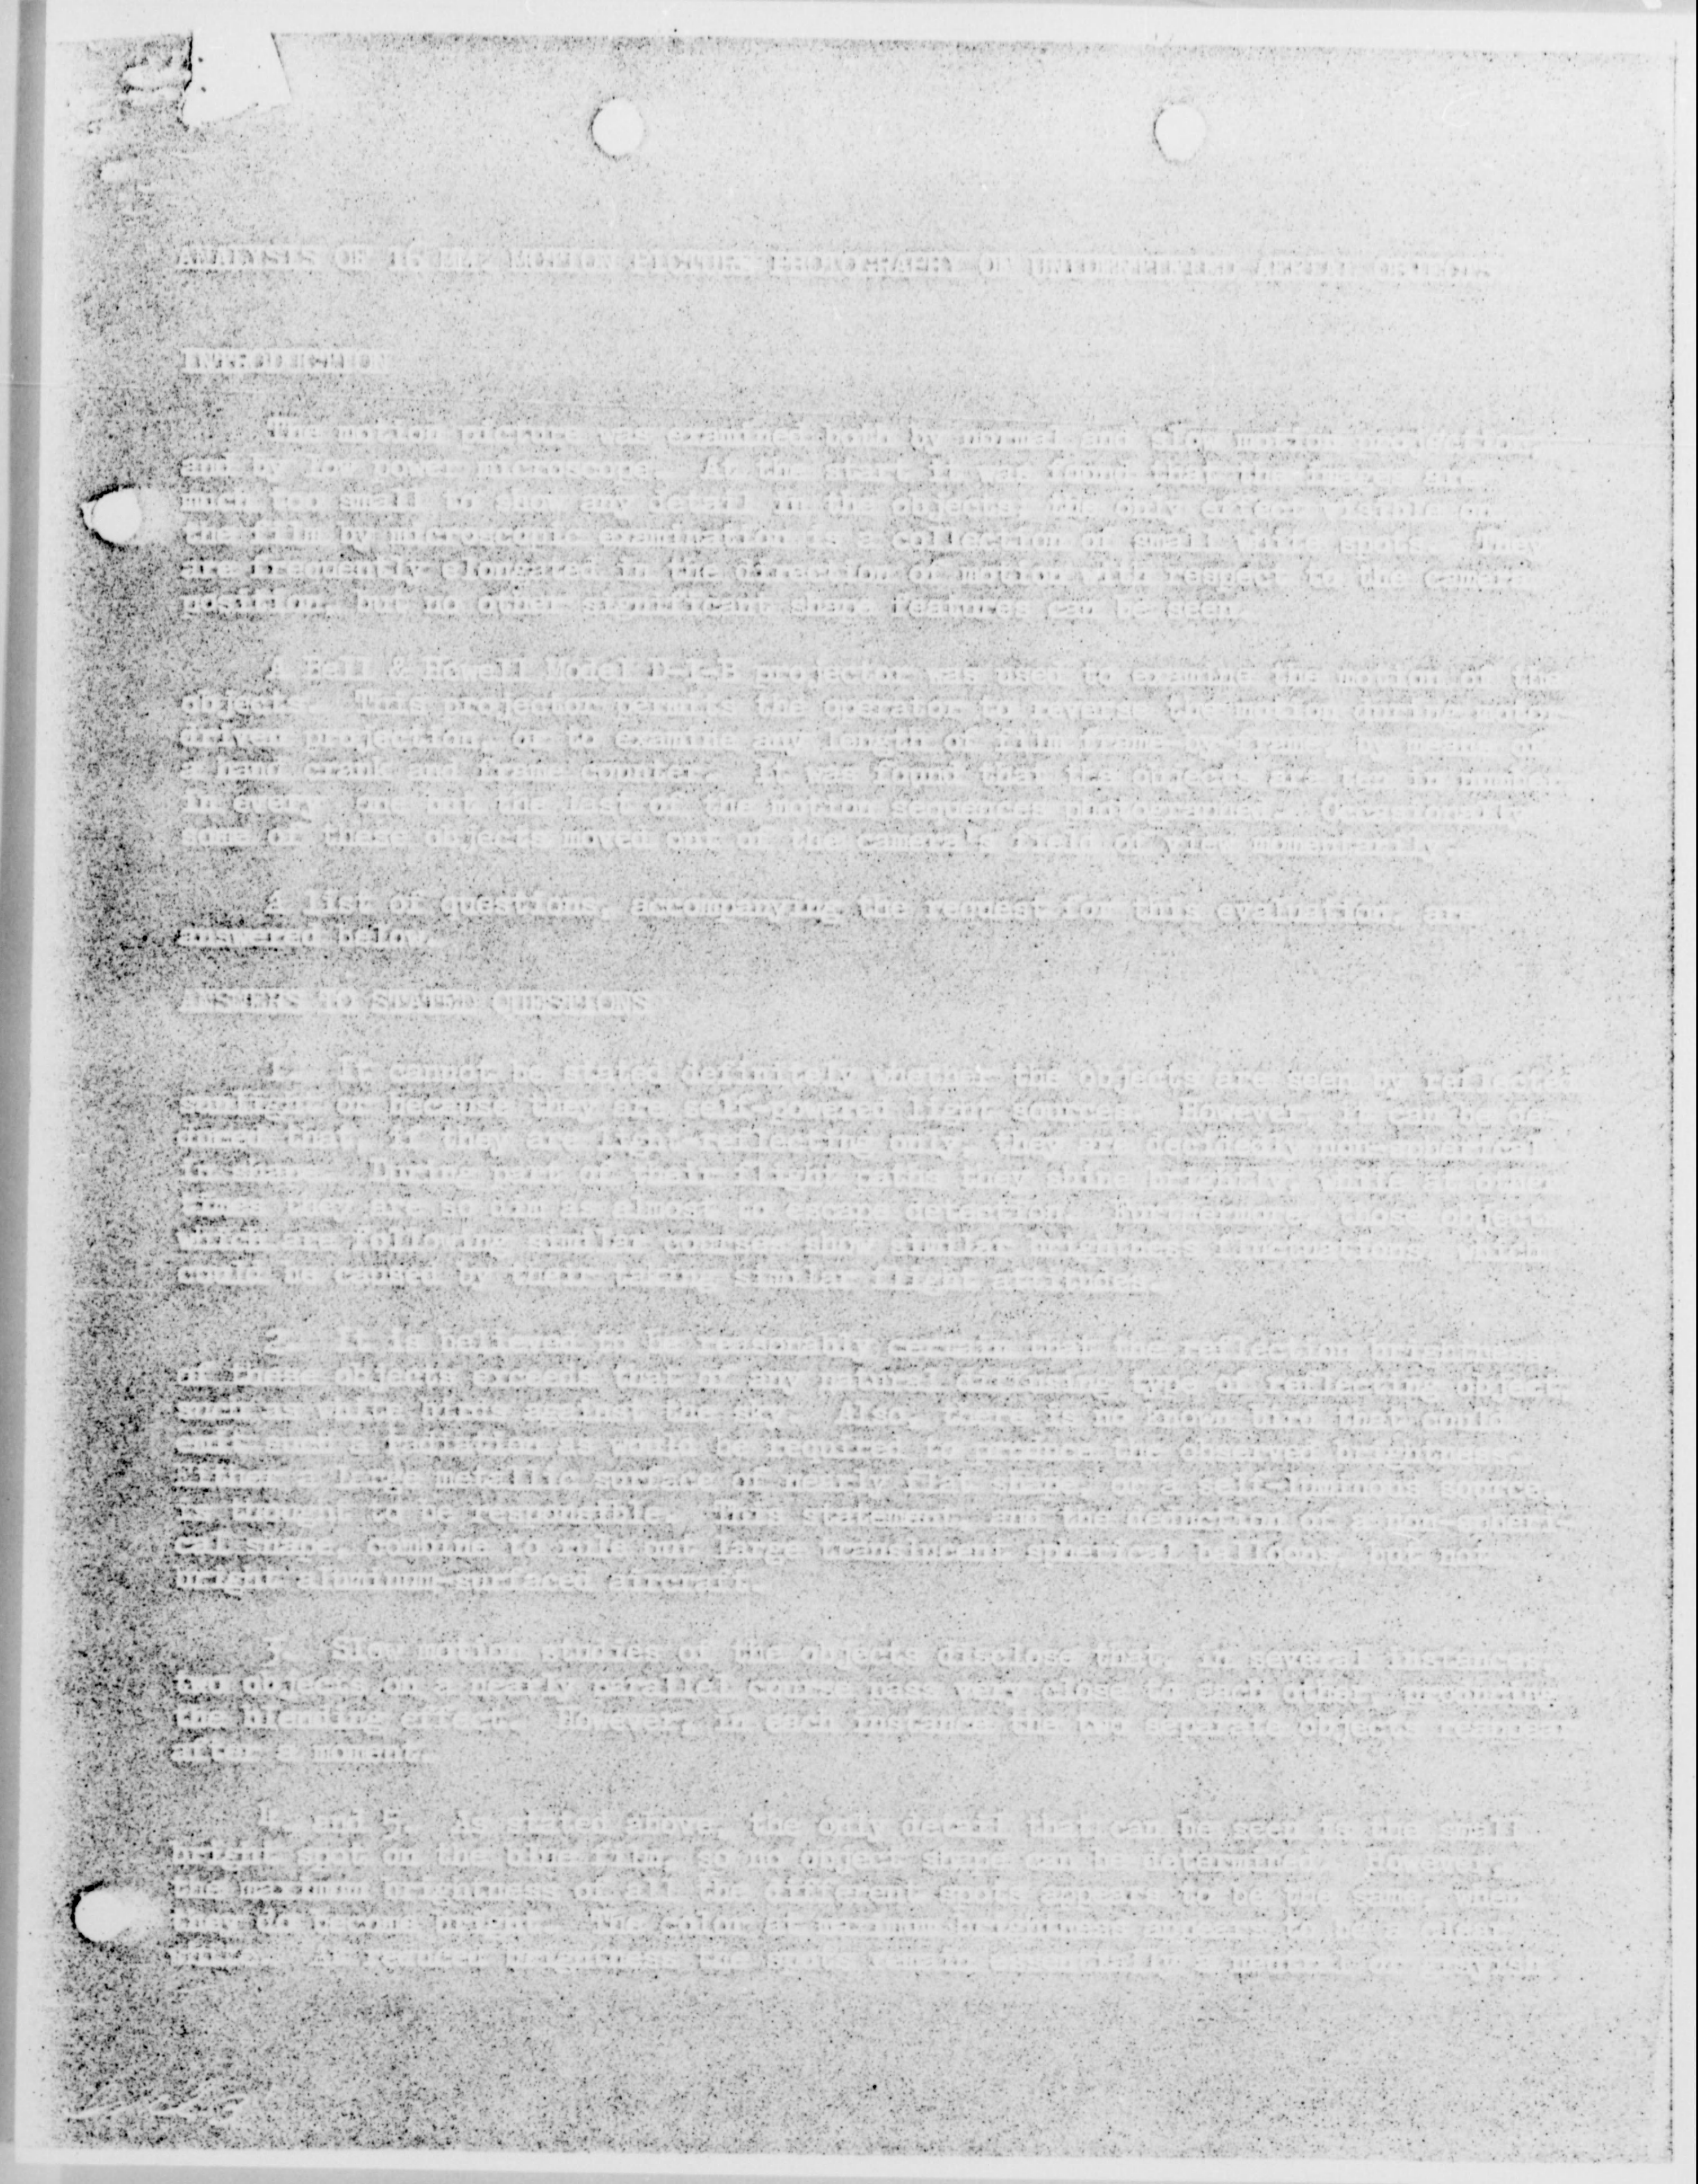 ANALYSES OF 16 MM. MOTION PICTURE PHOTOGRAPHY OF UNIDENTIFIED AERIAL OBJECTS
INTRODUCTION
The motion picture was examined both by normal and slow motion projection
and by low power microscope. At the start it was found that the images are
much too small to show any detail in the objects, the only effect visible on
the film by microscopic examination is a collection of small white spots. They
are frequently elongated in the direction of motion with respect to the camera
position, but no other significant shape features can be seen.
A Bell & Howell Model projector was used to examine the motion of the
objects. This projector permits the operator to reverse the motion during motor
driven projection, or to examine any length of film frame by frame by means of
a hand crank and frame counter. It was found that the objects are ten in number
in every one but the last of the motion sequences photographed. Occasionally
some of these objects moved out of the camera's field of view momentarily.
A list of questions, accompanying the request for this evaluation, are
answered below.
ANSWERS TO STATED QUESTIONS
1. It cannot be stated definitely whether the objects are seen by reflected
sunlight or because they are self-powered light sources. However, it can be de-
duced that, if they are light-reflecting only, they are decidedly non-spherical
in shape. During part of their flight paths they shine brightly, while at other
times they are so dim as almost to escape detection. Furthermore, those objects
which are following similar courses show similar brightness fluctuations, which
could be caused by their taking similar flight attitudes.
2. It is believed to be reasonably certain that the reflection brightness
of these objects exceeds that of any natural occurring type of reflecting object
such as white birds against the sky. Also, there is no known bird that could
emit such a radiation as would be required to produce the observed brightness.
Either a large metallic surface of nearly flat shape, or a self-luminous source,
is thought to be responsible. This statement, and the deduction of a non-spheri-
cal shape, combine to rule out large translucent spherical balloons, but not
bright aluminum-surfaced aircraft.
3. Slow motion studies of the objects disclose that, in several instances,
two objects on a nearly parallel course pass very close to each other, producing
the blending effect. However, in each instance the two separate objects reappear
after a moment.
4. and 5. As stated above, the only detail that can be seen is the small
bright spot on the film, so no object shape can be determined. However,
the maximum brightness of all the different spots appears to be the same when
they do become bright. The color at maximum brightness appears to be a clear
white. At reduced brightness, the spots remain essentially a neutral or grayish